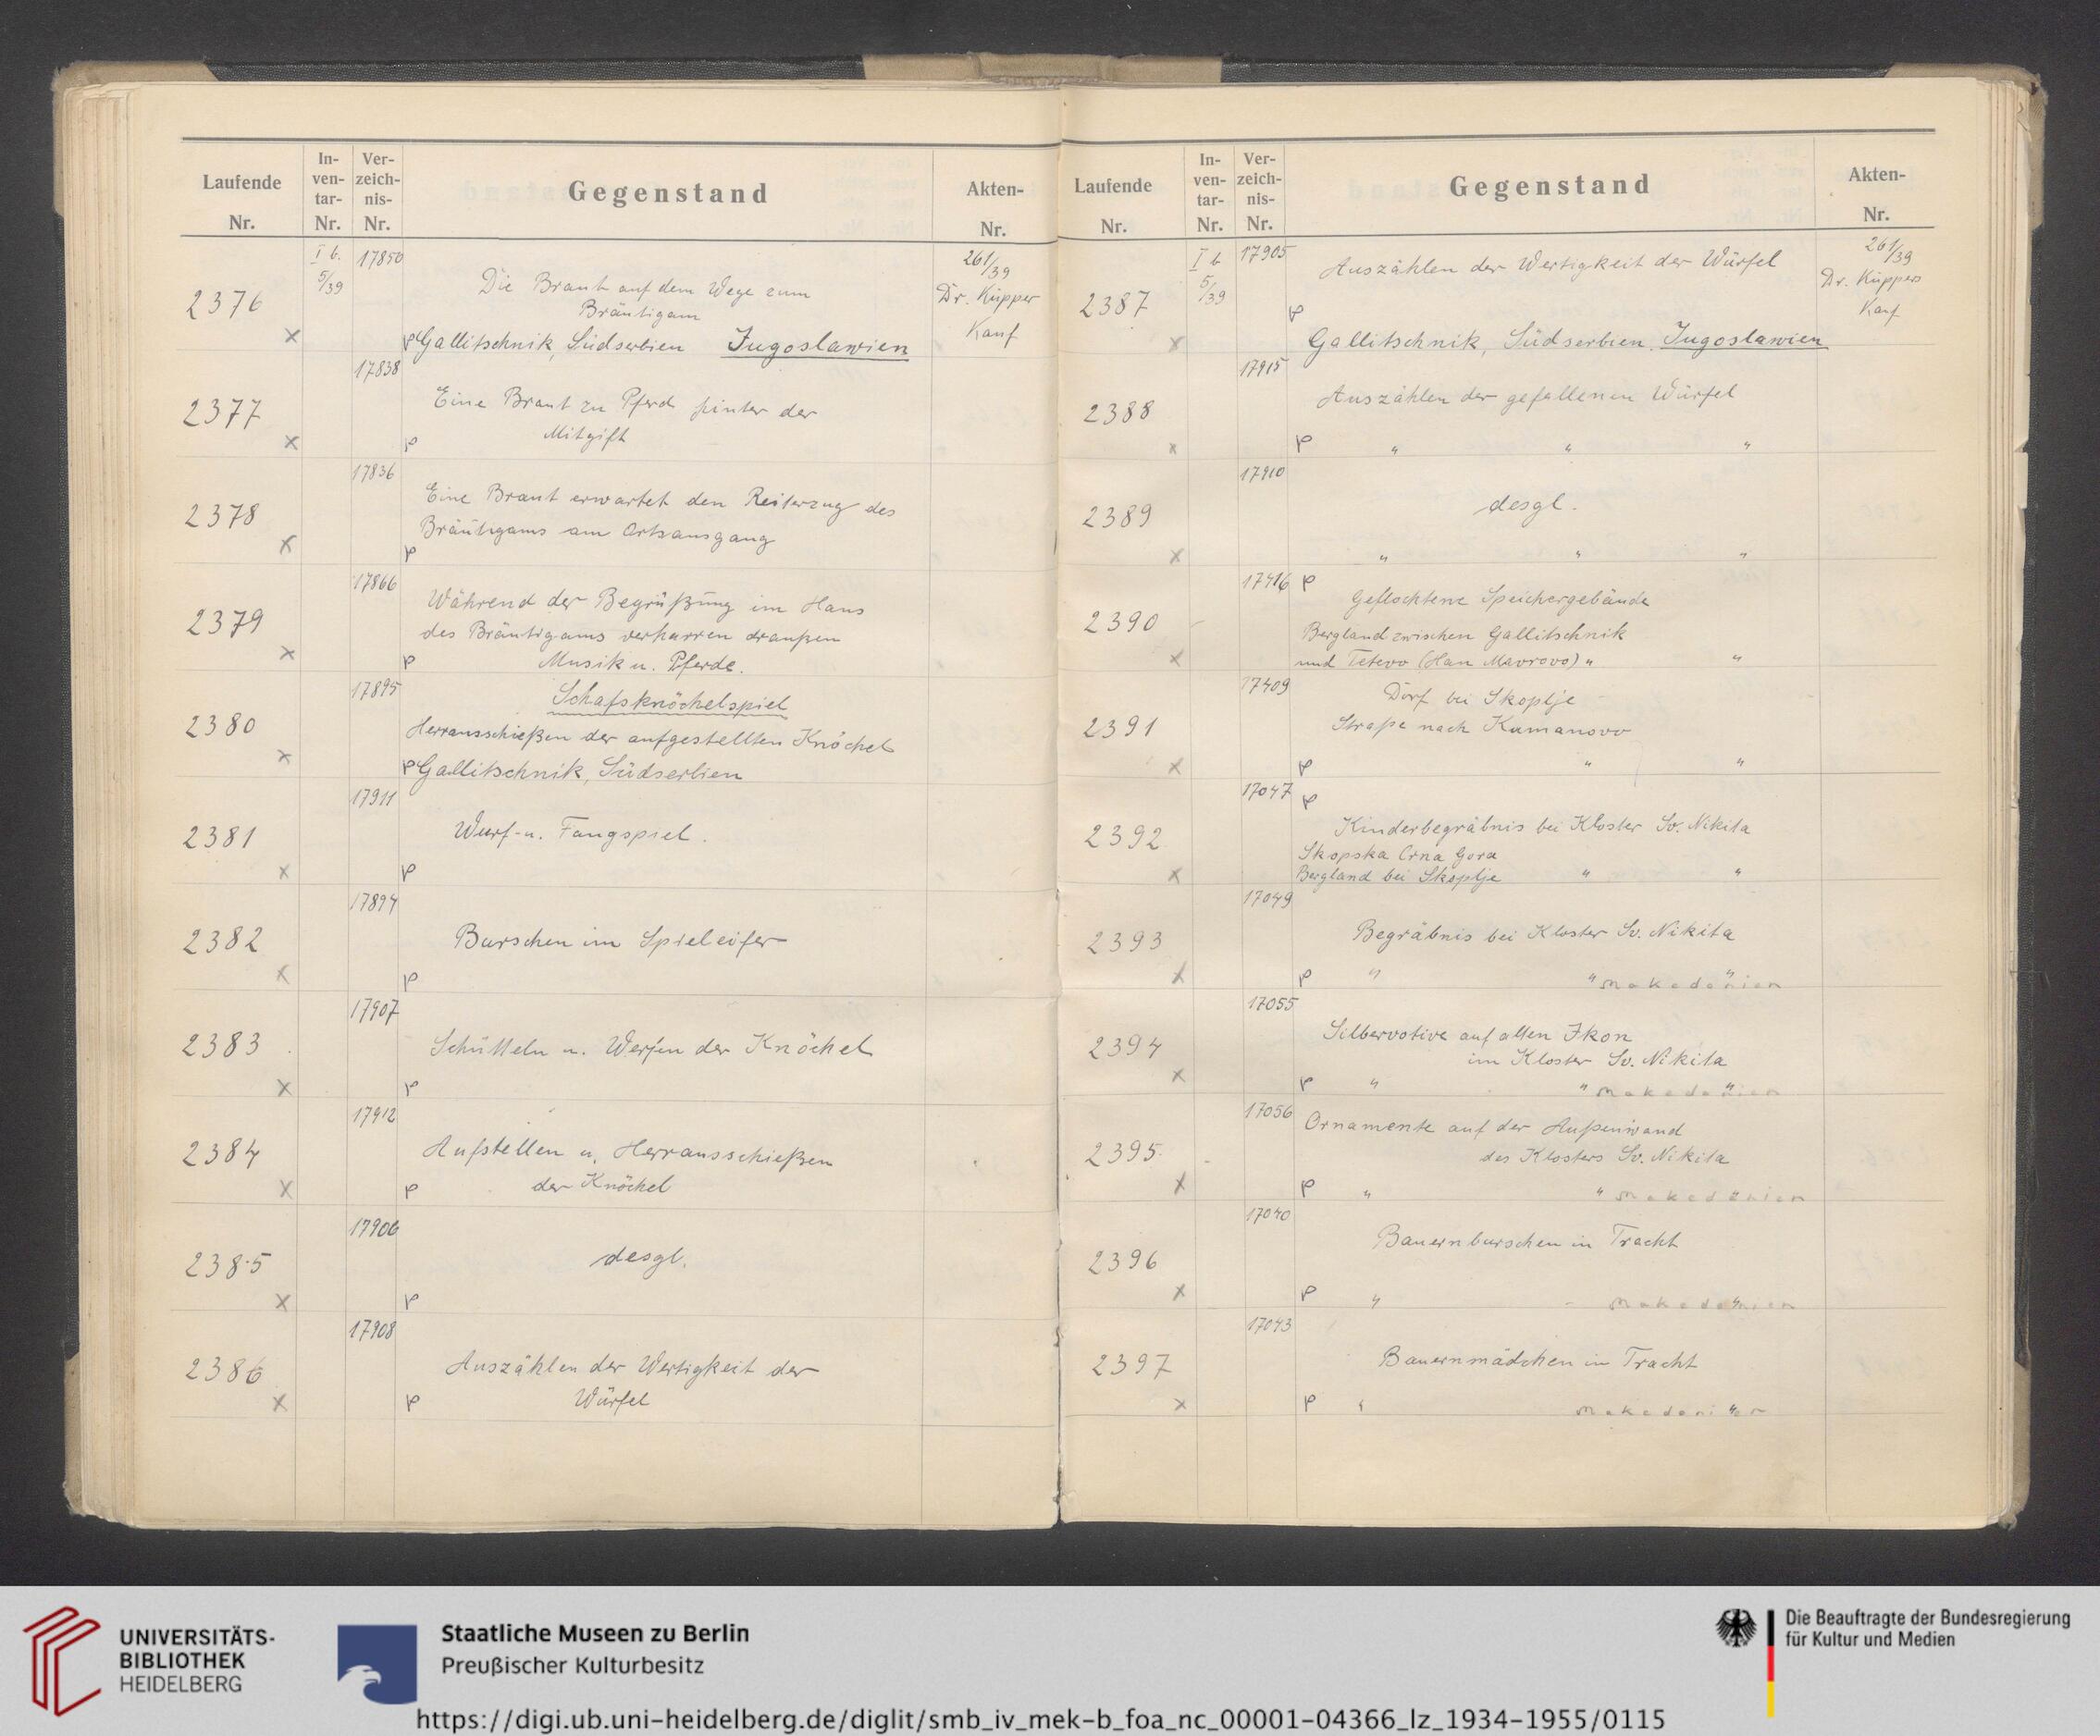 Laufende Nr.
In-ven-tar-Nr.
Ver-zeich-nis-Nr.
Gegenstand
Akten-Nr.
2376 x
I b. 5/39
17850
Die Braut auf dem Wege zum
Bräutigam
p Gallitschnik, Südserbien Jugoslawien
261/39
Dr. Küpper
Kauf
2377 x
17838
Eine Braut zu Pferd hinter der
p Mitgift
2378 x
17836
Eine Braut erwartet den Reiterzug des
Bräutigams am Ortsausgang
p
2379 x
17866
Während der Begrüßung im Haus
des Bräutigams verharren draußen
p Musik u. Pferde.
2380 x
17895
Schafsknöchelspiel
Herrausschießen der aufgestellten Knöchel
p Gallitschnik, Südserbien
2381 x
17911
Wurf- u. Fangspiel.
p
2382 x
17894
Burschen im Spieleifer
p
2383 x
17907
Schütteln u. Werfen der Knöchel
p
2384 x
17912
Aufstellen u. Herrausschießen
p der Knöchel
2385 x
17906
desgl.
p
2386 x
17908
Auszählen der Wertigkeit der
p Würfel
Laufende Nr.
In-ven-tar-Nr.
Ver-zeich-nis-Nr.
Gegenstand
Akten-Nr.
2387 x
I b 5/39
17905
Auszählen der Wertigkeit der Würfel
p
Gallitschnik, Südserbien, Jugoslawien
261/39
Dr. Küppers
Kauf
2388 x
17915
Auszählen der gefallenen Würfel
p " " "
2389 x
17910
desgl.
" " "
2390 x
17416 p
Geflochtene Speichergebäude
Bergland zwischen Gallitschnik
und Tetevo (Han Mavrovo) " "
2391 x
17409
Dorf bei Skoplje
Straße nach Kumanovo
p " "
2392 x
17047 p
Kinderbegräbnis bei Kloster Sv. Nikita
Skopska Crna Gora
Bergland bei Skoplje " "
2393 x
17049
Begräbnis bei Kloster Sv. Nikita
p " " " Makedonien
2394 x
17055
Silbervotive auf alten Ikon
im Kloster Sv. Nikita
p " " " Makedonien
2395 x
17056
Ornamente auf der Außenwand
des Klosters Sv. Nikita
p " " " Makedonien
2396 x
17040
Bauernburschen in Tracht
p " " Makedonien
2397 x
17043
Bauernmädchen in Tracht
p " " Makedonien
UNIVERSITÄTS-
BIBLIOTHEK
HEIDELBERG
Staatliche Museen zu Berlin
Preußischer Kulturbesitz
Die Beauftragte der Bundesregierung
für Kultur und Medien
https://digi.ub.uni-heidelberg.de/diglit/smb_iv_mek-b_foa_nc_00001-04366_lz_1934-1955/0115